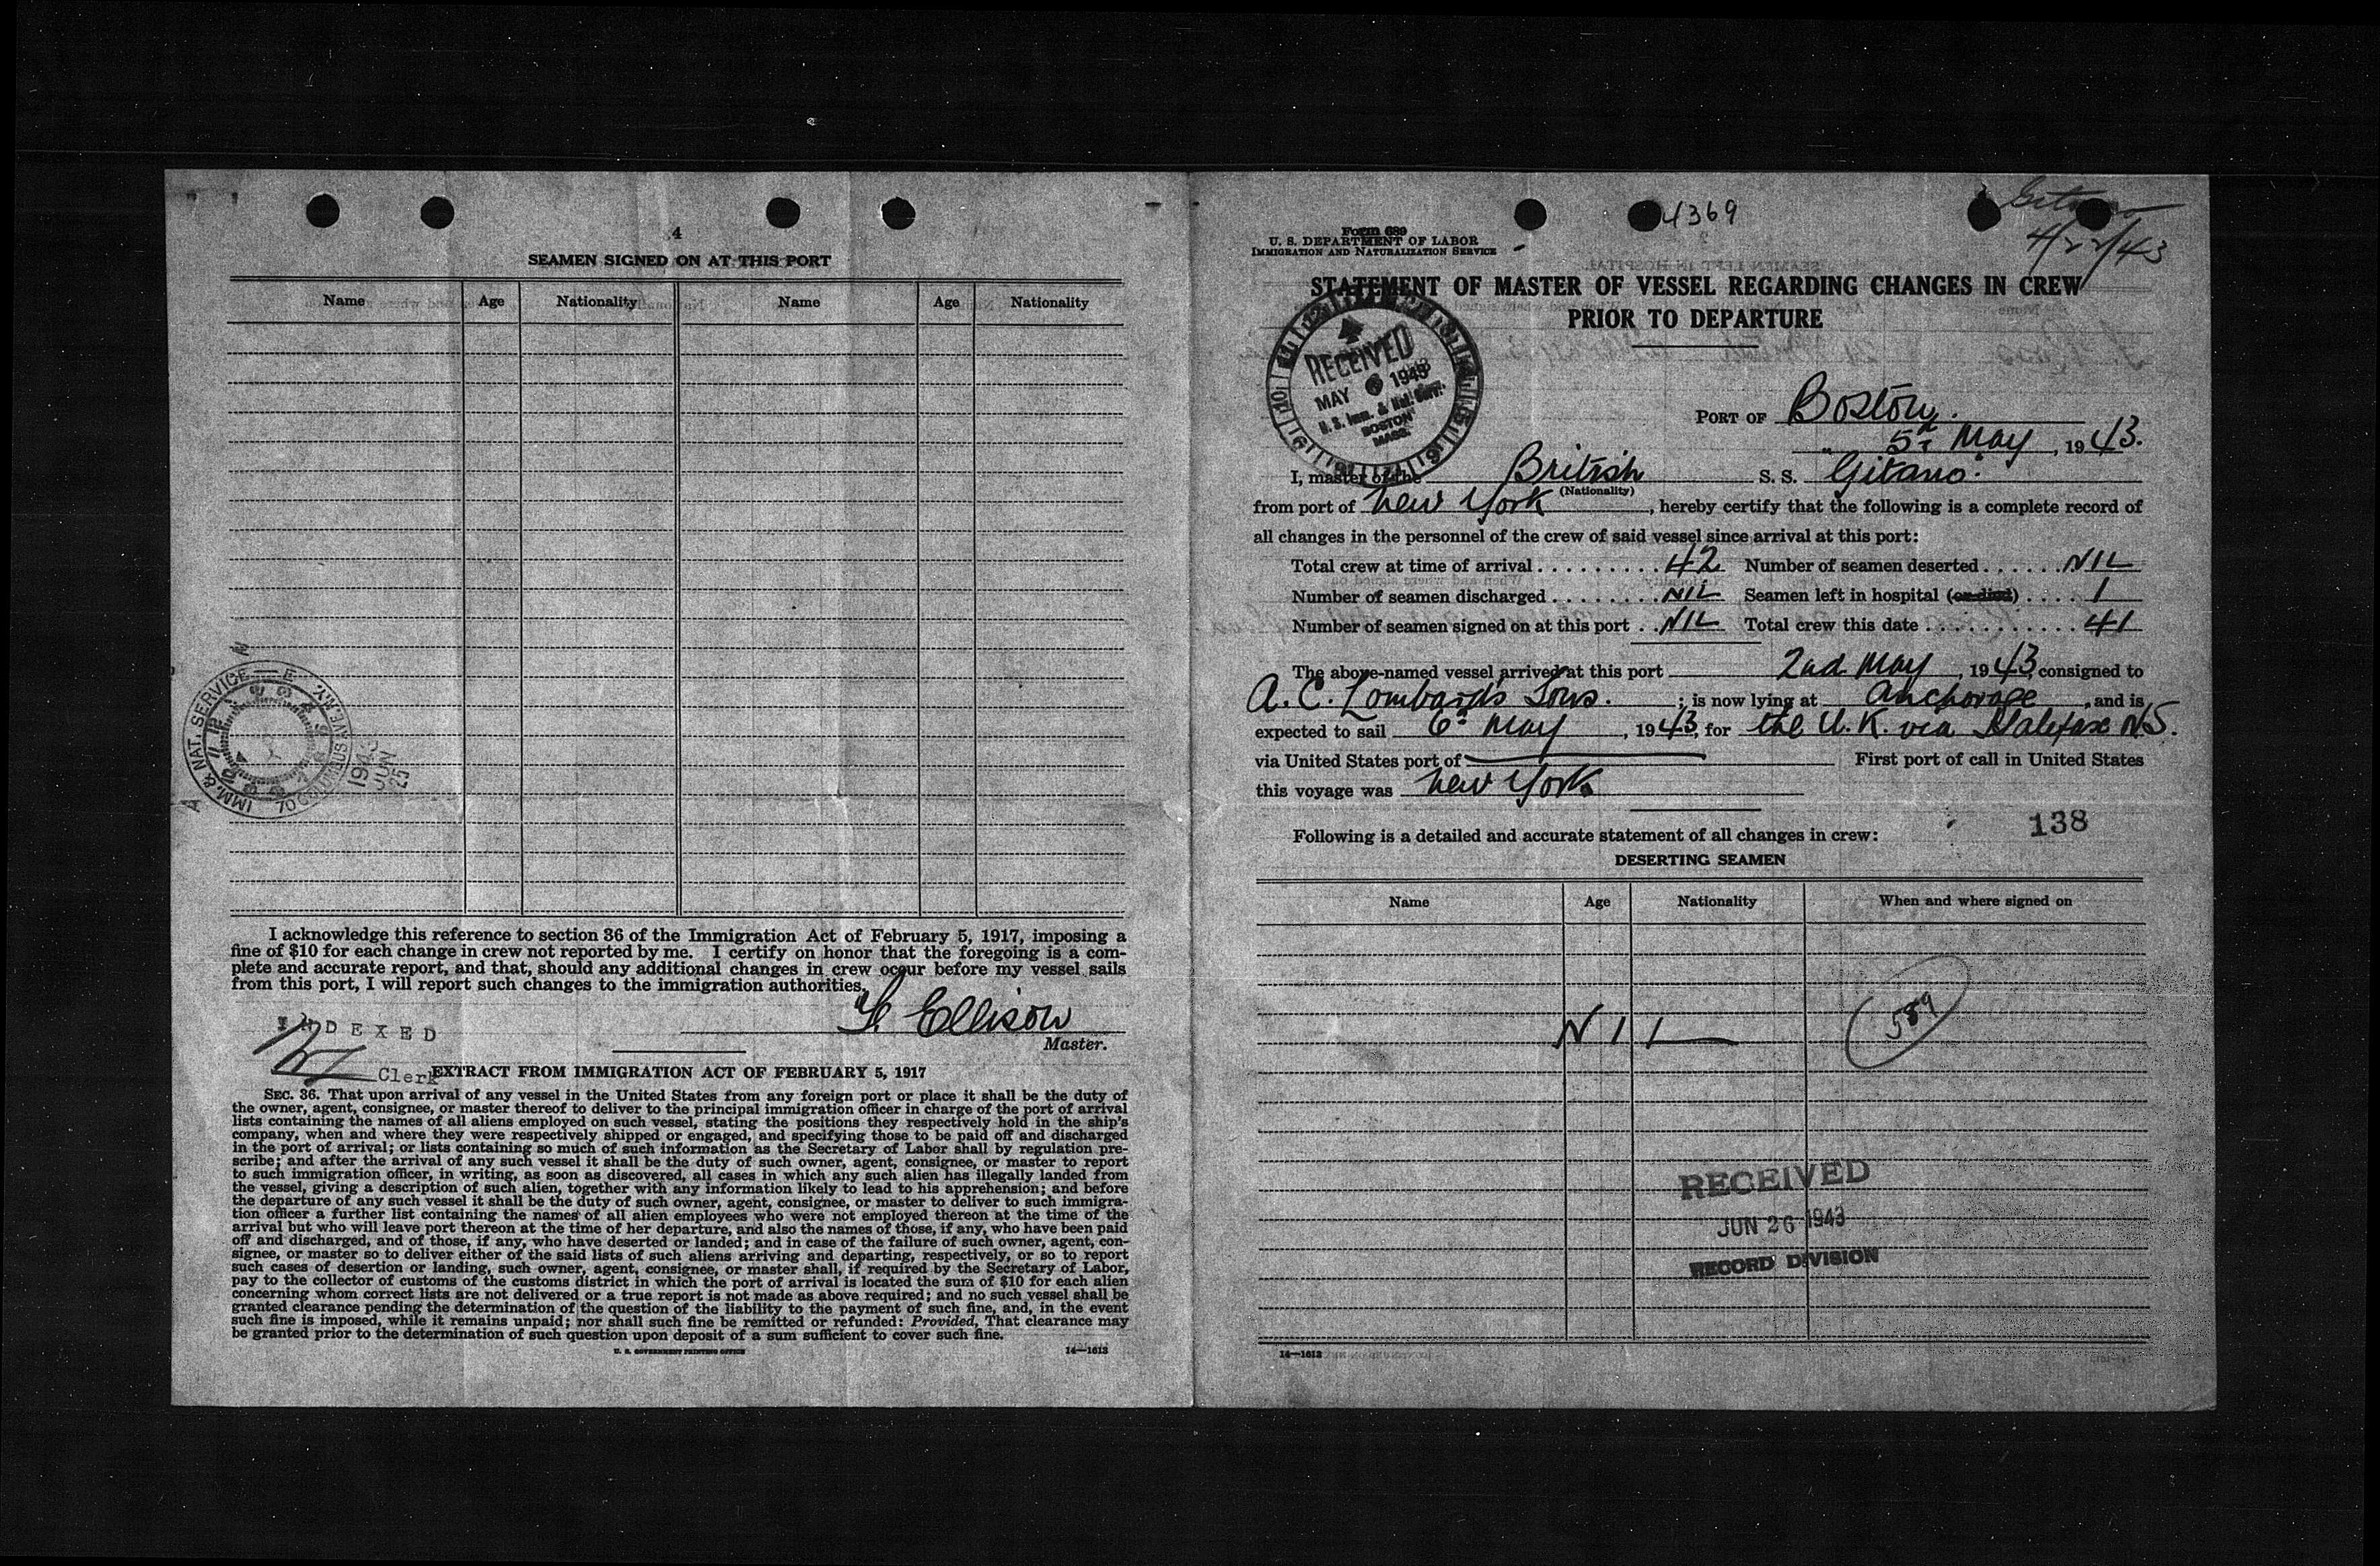 4
SEAMEN SIGNED ON AT THIS PORT
Name Age Nationality Name Age Nationality
IMM. & NAT. SERVICE
1943
JUN
25
I acknowledge this reference to section 36 of the Immigration Act of February 5, 1917, imposing a
fine of $10 for each change in crew not reported by me. I certify on honor that the foregoing is a com-
plete and accurate report, and that, should any additional changes in crew occur before my vessel sails
from this port, I will report such changes to the immigration authorities.
Ellison
Master.
INDEXED
Clerk
EXTRACT FROM IMMIGRATION ACT OF FEBRUARY 5, 1917
SEC. 36. That upon arrival of any vessel in the United States from any foreign port or place it shall be the duty of
the owner, agent, consignee, or master thereof to deliver to the principal immigration officer in charge of the port of arrival
lists containing the names of all aliens employed on such vessel, stating the positions they respectively hold in the ship's
company, when and where they were respectively shipped or engaged, and specifying those to be paid off and discharged
in the port of arrival; or lists containing so much of such information as the Secretary of Labor shall by regulation pre-
scribe; and after the arrival of any such vessel it shall be the duty of such owner, agent, consignee, or master to report
to such immigration officer, in writing, as soon as discovered, all cases in which any such alien has illegally landed from
the vessel, giving a description of such alien, together with any information likely to lead to his apprehension; and before
the departure of any such vessel it shall be the duty of such owner, agent, consignee, or master to deliver to such immigra-
tion officer a further list containing the names of all alien employees who were not employed thereon at the time of the
arrival but who will leave port thereon at the time of her departure, and also the names of those, if any, who have been paid
off and discharged, and of those, if any, who have deserted or landed; and in case of the failure of such owner, agent, con-
signee, or master so to deliver either of the said lists of such aliens arriving and departing, respectively, or so to report
such cases of desertion or landing, such owner, agent, consignee, or master shall, if required by the Secretary of Labor,
pay to the collector of customs of the customs district in which the port of arrival is located the sum of $10 for each alien
concerning whom correct lists are not delivered or a true report is not made as above required; and no such vessel shall be
granted clearance pending the determination of the question of the liability to the payment of such fine, and, in the event
such fine is imposed, while it remains unpaid; nor shall such fine be remitted or refunded: Provided, That clearance may
be granted prior to the determination of such question upon deposit of a sum sufficient to cover such fine.
U. S. GOVERNMENT PRINTING OFFICE 14—1613
4369
Gitano
4/22/43
Form 689
U. S. DEPARTMENT OF LABOR
IMMIGRATION AND NATURALIZATION SERVICE
STATEMENT OF MASTER OF VESSEL REGARDING CHANGES IN CREW
PRIOR TO DEPARTURE
RECEIVED
MAY 6 1943
U. S. Imm. & Nat. Serv.
BOSTON
MASS.
PORT OF Boston.
5th May, 1943.
I, master of the British S. S. "Gitano".
(Nationality)
from port of New York, hereby certify that the following is a complete record of
all changes in the personnel of the crew of said vessel since arrival at this port:
Total crew at time of arrival . . . . . . . . . 42 Number of seamen deserted . . . . . . NIL
Number of seamen discharged . . . . . . . NIL Seamen left in hospital (or died) . . . . 1
Number of seamen signed on at this port . . NIL Total crew this date . . . . . . . . . . . 41
The above-named vessel arrived at this port 2nd May, 1943, consigned to
A. C. Lombards Sons. ; is now lying at Anchorage, and is
expected to sail 6th May, 1943, for the U.K. via Halifax N.S.
via United States port of First port of call in United States
this voyage was New York
138
Following is a detailed and accurate statement of all changes in crew:
DESERTING SEAMEN
Name Age Nationality When and where signed on
589
NIL
RECEIVED
JUN 26 1943
RECORD DIVISION
14—1613